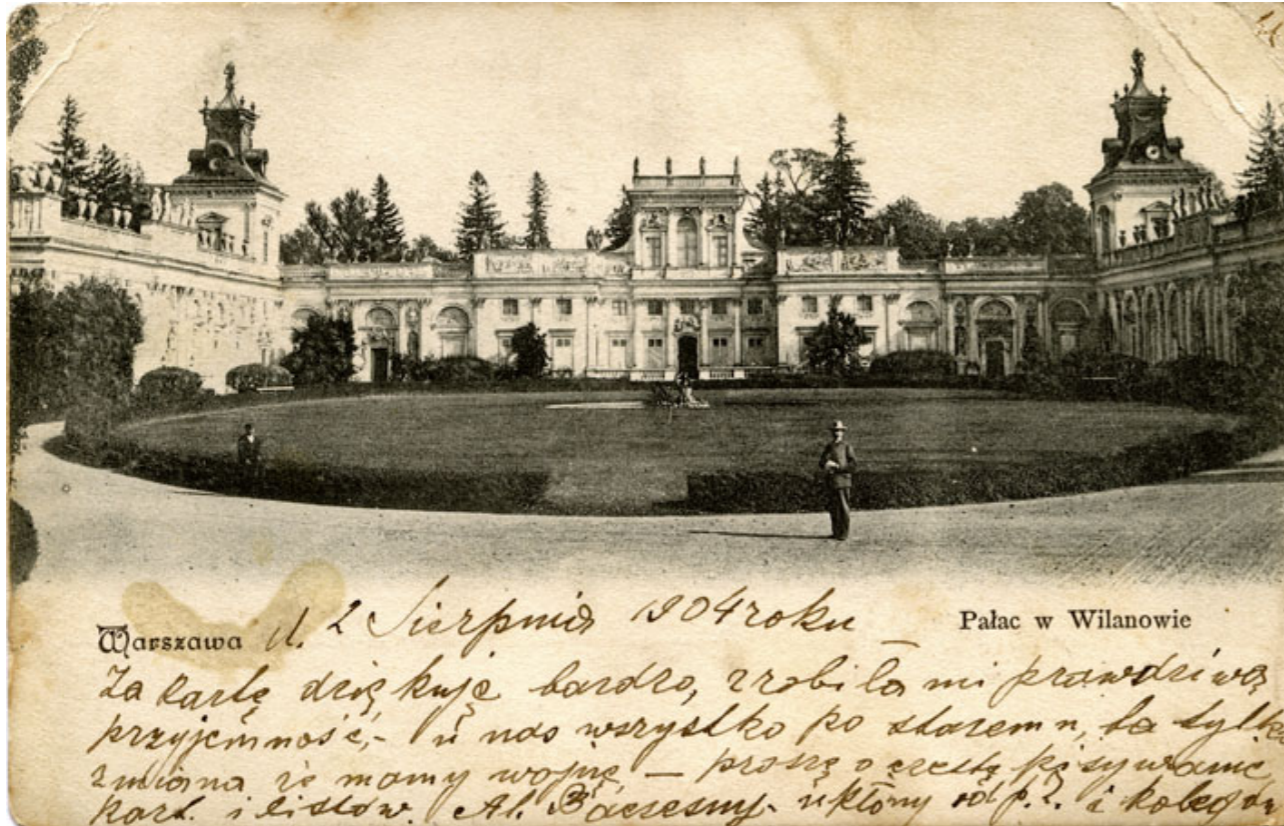 Warszawa d. 2 Sierpnia 1904 roku
Pałac w Wilanowie
Za kartę dziękuję bardzo, zrobiła mi prawdziwą
przyjemność,- u nas wszystko po staremu, ta tylko
zmiana że mamy wojnę — proszę o częste pisywanie
kart. i listów. Al. ukłony od p. Z. i kolegów